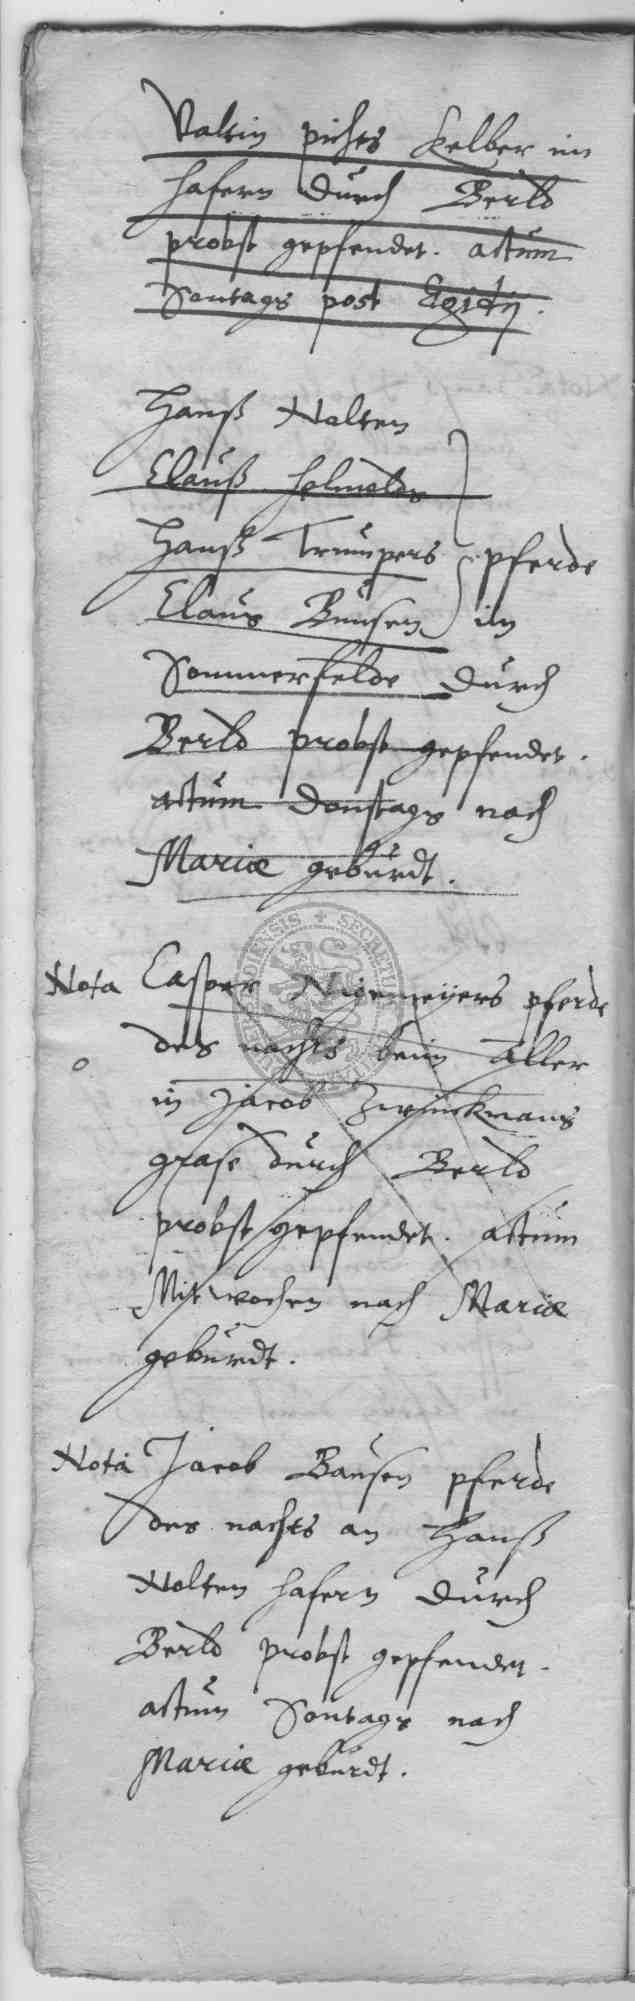 Valtin pichts Kelber im
hafern durch Berld
probst gepfendet. actum
Sontags post Egidij.
Hanß Nolten
Clauß helmolds
Hanß Trumpers pferde
Claus Bunsen im
Sommerfelde durch
Berld probst gepfendet.
actum Donstags nach
Mariæ geburdt.
Nota Casper Nigemeyers pferde
des nachts beim aller
in Jacob Zwinckmans
grase durch Berld
probst gepfendet. actum
Mitwochen nach Mariæ
geburdt.
Nota Jacob Bausen pferde
des nachts an Hanß
Nolten hafern durch
Berld probst gepfendet.
actum Sontags nach
Mariæ geburdt.